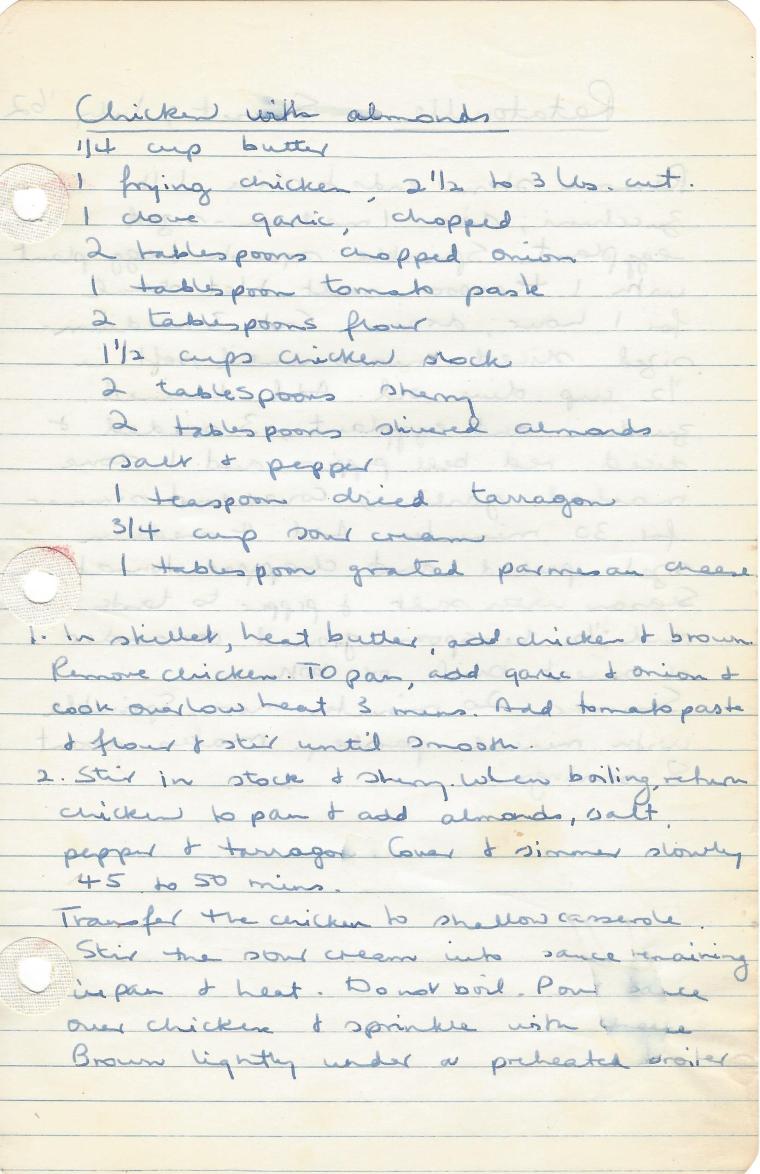 Chicken with almonds
1/4 cup butter
1 frying chicken, 2 1/2 to 3 lbs. cut.
1 clove garlic, chopped
2 tablespoons chopped onion
1 tablespoon tomato paste
2 tablespoons flour
1 1/2 cups chicken stock
2 tablespoons sherry
2 tablespoons slivered almonds
salt & pepper
1 teaspoon dried tarragon
3/4 cup sour cream
1 tablespoon grated parmesan cheese
1. In skillet, heat butter, add chicken & brown.
Remove chicken. To pan, add garlic & onion &
cook over low heat 3 mins. Add tomato paste
& flour & stir until smooth.
2. Stir in stock & sherry. When boiling, return
chicken to pan & add almonds, salt,
pepper & tarragon. Cover & simmer slowly
45 to 50 mins.
Transfer the chicken to shallow casserole.
Stir the sour cream into sauce remaining
in pan & heat. Do not boil. Pour sauce
over chicken & sprinkle with cheese
Brown lightly under a preheated broiler